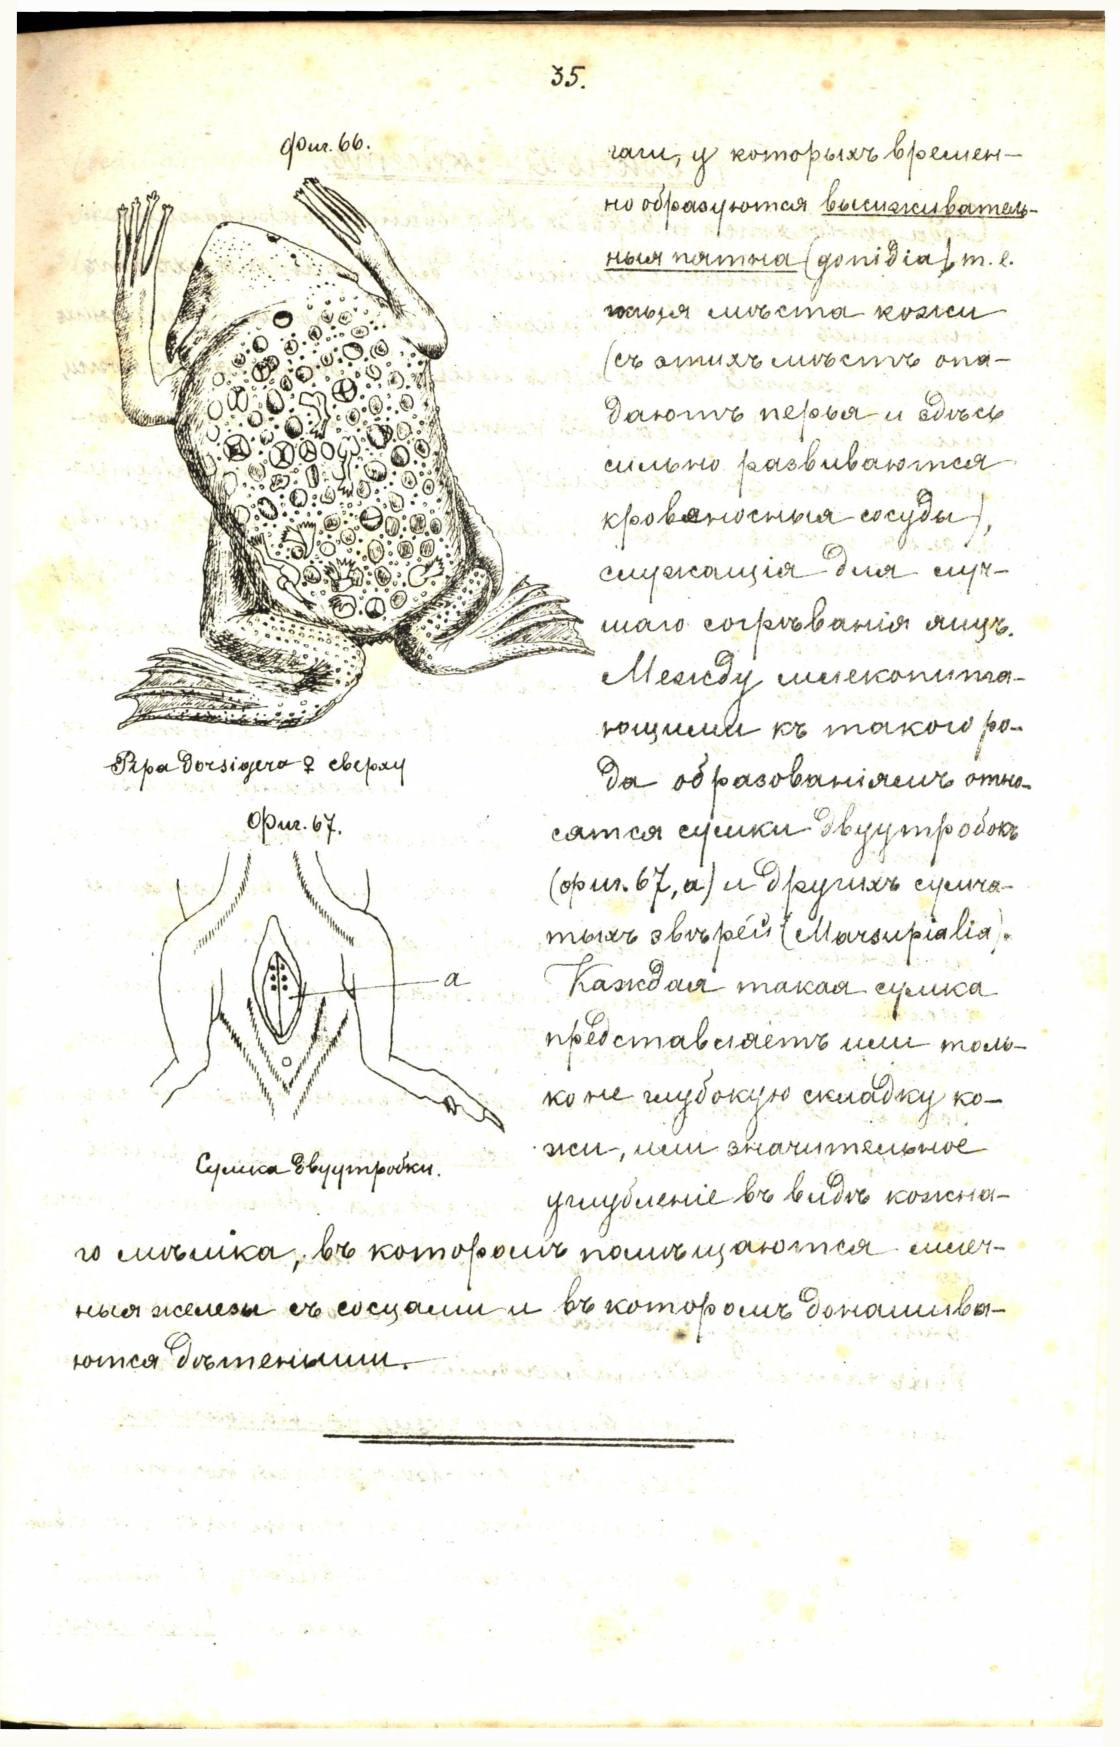 35.
Фиг. 66.
гаги, у которыхъ времен-
но образуются высиживатель-
ныя пятна (gonidia), т. е.
голыя мѣста кожи
(съ этихъ мѣстъ опа-
даютъ перья и здѣсь
сильно развиваются
кровеносныя сосуды),
служащія для луч-
шаго согрѣванія яицъ.
Между млекопита-
ющими къ такого ро-
да образованіямъ отно-
сятся сумки двуутробокъ
(фиг. 67, а) и другихъ сумча-
тыхъ звѣрей (Marsupialia).
Каждая такая сумка
представляетъ или толь-
ко не глубокую складку ко-
жи, или значительное
углубленіе въ видѣ кожна-
го мѣшка, въ которомъ помѣщаются млеч-
ныя железы съ сосцами и въ которомъ донашива-
ются дѣтеныши.
Pipa dorsigera ♀ сверху
Фиг. 67.
а
Сумка двуутробки.